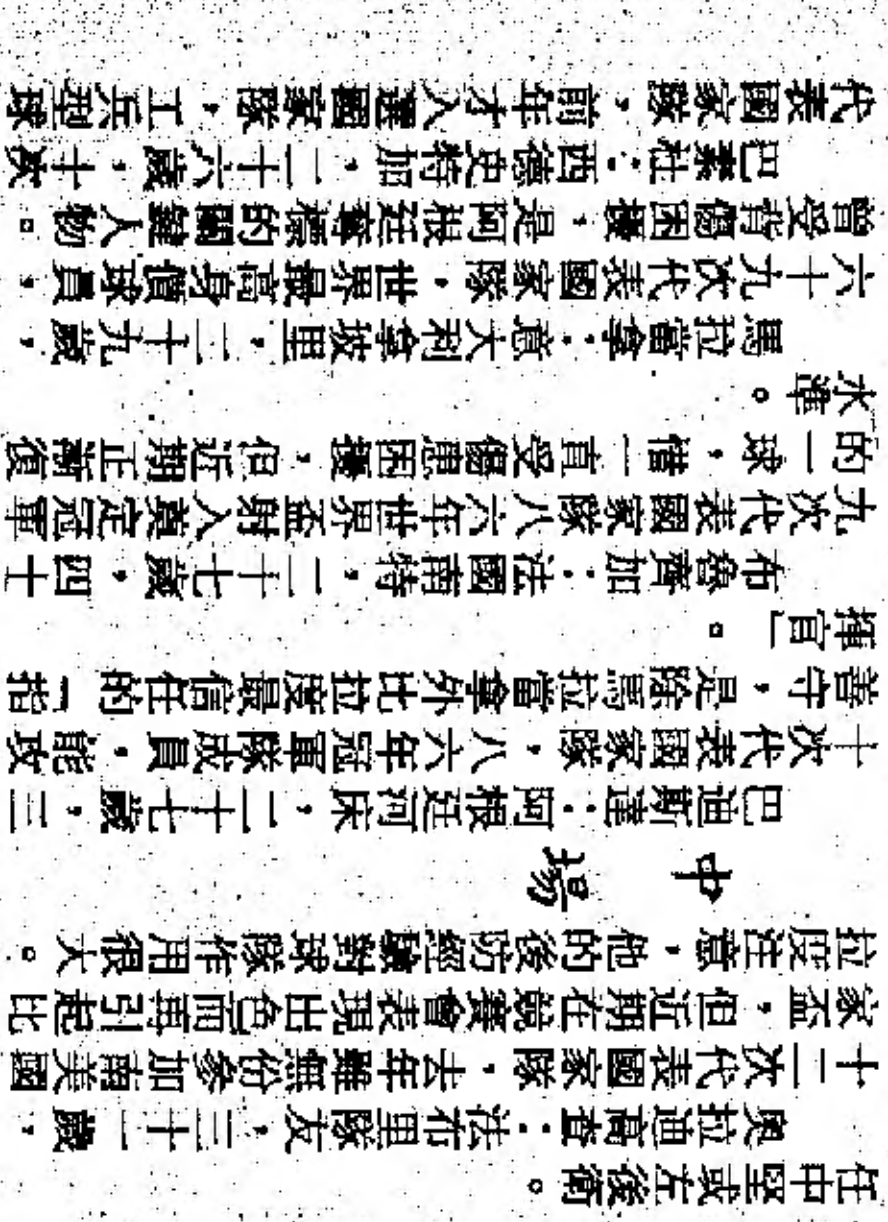 任中堅或左後衛。
奧拉迪高查：法布里隊友，三十一歲，
十二次代表國家隊，去年雖無份參加南美國
家盃，但近期在競賽會表現出色而再引起比
拉度注意，他的後防經驗對球隊作用很大。
中場
巴迪斯達：阿根廷河床，二十七歲，三
十次代表國家隊，八六年冠軍隊成員，能攻
善守，是除馬拉當拿外比拉度最信任的「指
揮官」。
布魯齊加：法國南特，二十七歲，四十
九次代表國家隊八六年世界盃射入奠定冠軍
的一球，惜一直受傷患困擾，但近期正漸復
水準。
馬拉當拿：意大利拿坡里，二十九歲，
六十九次代表國家隊，世界最高身價球員，
曾受背傷困擾，是阿根廷奪標的關鍵人物。
巴素杜：西德史特加，二十六歲，十次
代表國家隊，前年才入選國家隊，工兵型球